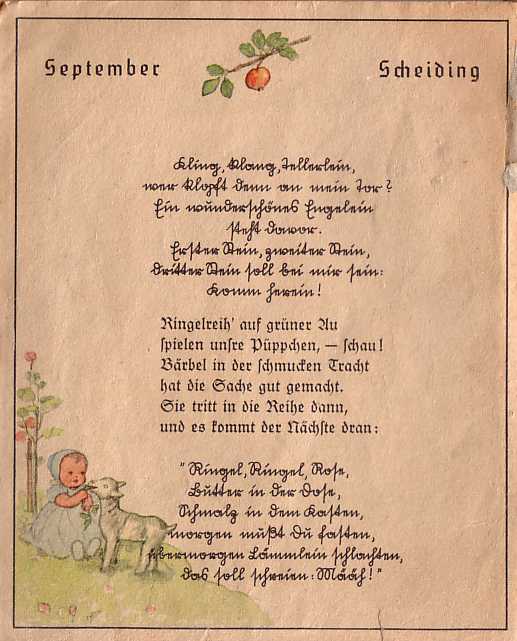 September Scheiding
Kling, Klang, Tellerlein,
wer klopft denn an mein Tor?
Ein wunderschönes Engelein
steht davor.
Erster Stein, zweiter Stein,
dritter Stein soll bei mir sein:
Komm herein!
Ringelreih' auf grüner Au
spielen unsre Püppchen, – schau!
Bärbel in der schmucken Tracht
hat die Sache gut gemacht.
Sie tritt in die Reihe dann,
und es kommt der Nächste dran:
"Ringel, Ringel, Rose,
Butter in der Dose,
Schmalz in dem Kasten,
morgen mußt Du fasten,
übermorgen Lämmlein schlachten,
das soll schreien: Määh!"